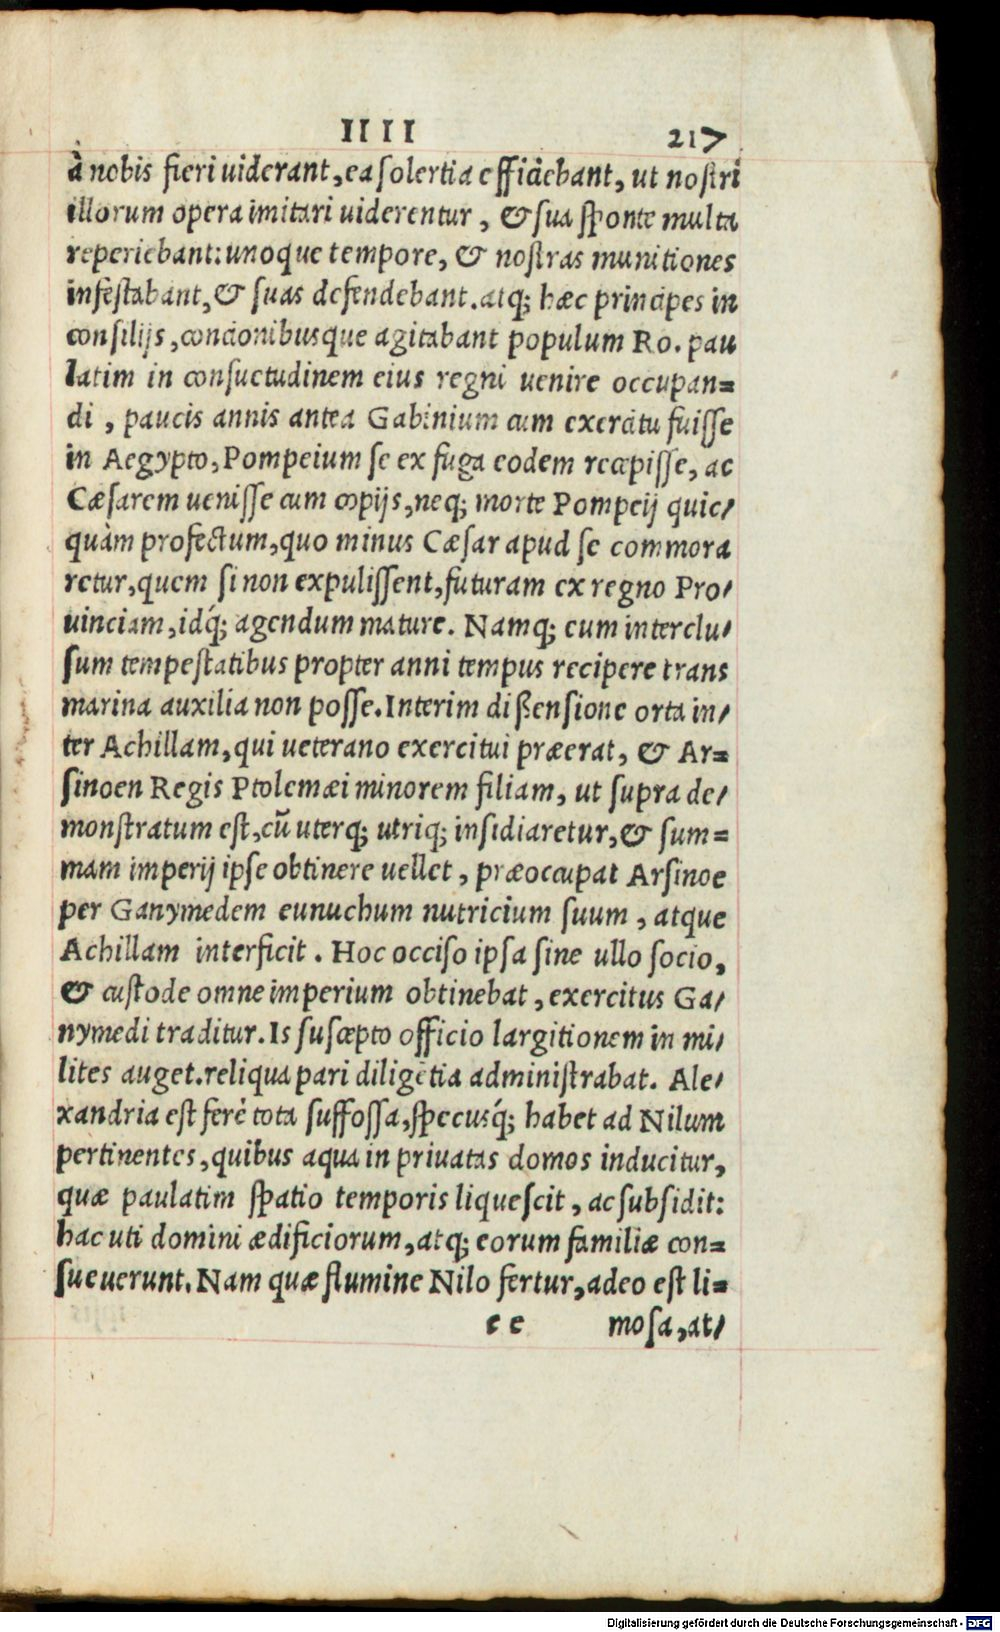 IIII 217
à nobis fieri uiderant, ea solertia efficiebant, ut nostri
illorum opera imitari uiderentur, & sua sponte multa
reperiebant: unoque tempore, & nostras munitiones
infestabant, & suas defendebant. atq; hæc principes in
consilijs, concionibusque agitabant populum Ro. pau
latim in consuetudinem eius regni uenire occupan=
di, paucis annis antea Gabinium cum exercitu fuisse
in Aegypto, Pompeium se ex fuga eodem recepisse, ac
Cæsarem uenisse cum copijs, neq; morte Pompeij quic/
quàm profectum, quo minus Cæsar apud se commora
retur, quem si non expulissent, futuram ex regno Pro/
uinciam, idq́; agendum mature. Namq; eum interclu/
sum tempestatibus propter anni tempus recipere trans
marina auxilia non posse. Interim dißensione orta in/
ter Achillam, qui ueterano exercitui præerat, & Ar=
sinoen Regis Ptolemæi minorem filiam, ut supra de/
monstratum est, cū uterq; utriq; insidiaretur, & sum=
mam imperij ipse obtinere uellet, præoccupat Arsinoe
per Ganymedem eunuchum nutricium suum, atque
Achillam interficit. Hoc occiso ipsa sine ullo socio,
& custode omne imperium obtinebat, exercitus Ga/
nymedi traditur. Is suscepto officio largitionem in mi/
lites auget. reliqua pari diligētia administrabat. Ale/
xandria est ferè tota suffossa, specusq́; habet ad Nilum
pertinentes, quibus aqua in priuatas domos inducitur,
quæ paulatim spatio temporis liquescit, ac subsidit:
hac uti domini ædificiorum, atq; eorum familiæ con=
sueuerunt. Nam quæ flumine Nilo fertur, adeo est li=
ee mosa, at/
Digitalisierung gefördert durch die Deutsche Forschungsgemeinschaft - DFG